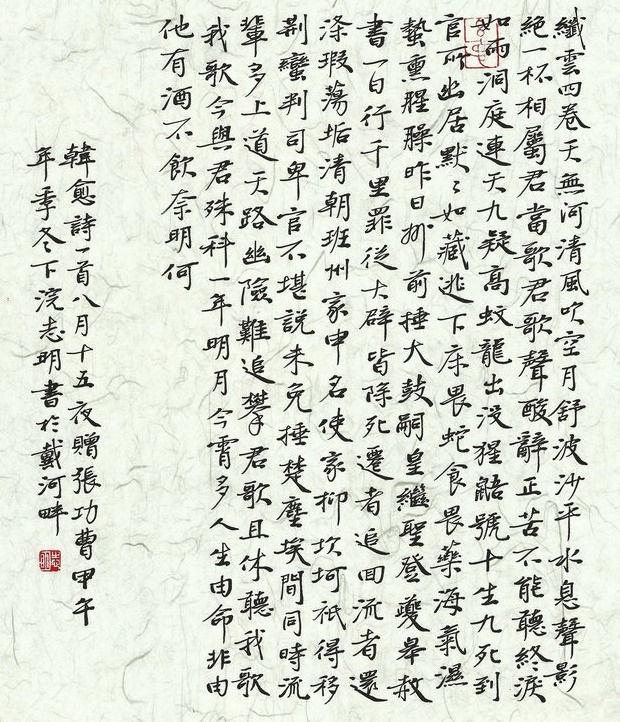 纖雲四卷天無河清風吹空月舒波沙平水息聲影
絕一杯相屬君當歌君歌聲酸辭正苦不能聽終淚
如雨洞庭連天九疑高蛟龍出沒猩鼯號十生九死到
官所幽居默〻如藏逃下床畏蛇食畏藥海氣濕
蟄熏腥臊昨日州前捶大鼓嗣皇繼聖登夔皋赦
書一日行千里罪從大辟皆除死遷者追回流者還
滌瑕蕩垢清朝班州家申名使家抑坎坷祇得移
荆蠻判司卑官不堪說未免捶楚塵埃間同時流
輩多上道天路幽險難追攀君歌且休聽我歌
我歌今與君殊科一年明月今宵多人生由命非由
他有酒不飲奈明何
韓愈詩一首八月十五夜贈張功曹甲午
年季冬下浣志明書於戴河畔
志明